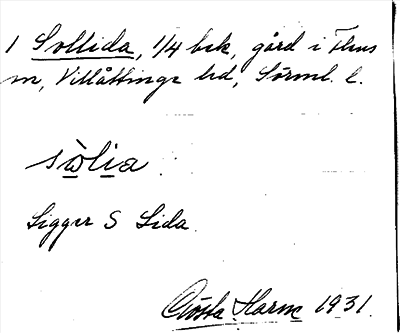 1 Sollida, 1/4 bsk, gård i Flens
sn, Villåttinge hd, Sörml. l.
sòlia
Ligger S Lida.
Gösta Harm 1931.